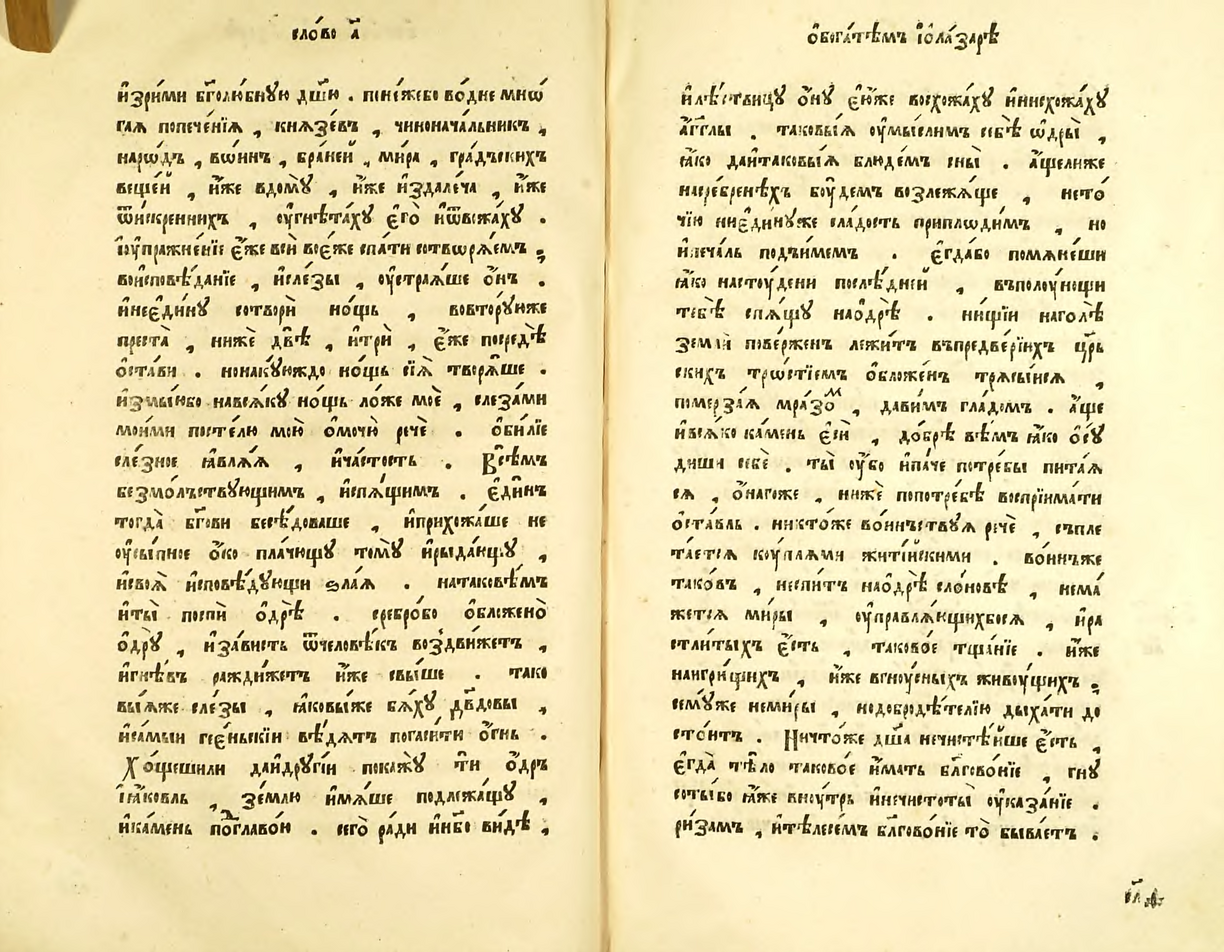 сло́во а҃
и҆зри́ми бг҃олю́бнꙋю дш҃ю . поне́жебо во́дне мнѡ́
гаѧ попече́нїѧ , кнѧзе́въ , чиноначальникъ ,
наро́дъ , вѡ́инъ , бране́й , мира , гра́дъскихъ
веще́й , и҆́же вдомꙋ̀ , и҆́же и҆здале́ча , и҆́же
ѿи҆́скреннихъ , оу҆гнѣта́хꙋ є҆го̀ и҆ѿвсю́ждꙋ .
і҆оу҆пражне́нїе є҆́же всѝ воє҆́же спа́ти сотворѧ́емъ ,
воисповѣ́данїе , и҆сле́зы , оу҆страѧ́ше о҆́нъ .
и҆неє҆ди́нꙋ сотворѝ но́щь , вовторꙋ́ю же
преста̀ , нижѐ двѣ̀ , и҆трѝ , є҆́же посредѣ̀
ѻ҆ста́ви . нонакꙋ́юждо но́щь сїѧ̀ творѧ́ше .
и҆змы́юбо навсѧ́кꙋ но́щь ло́же моѐ , слеза́ми
мои́ми посте́лю мою̀ ѻ҆мочю̀ речѐ . ѻ҆би́лїе
сле́зное ꙗ҆влѧ́ѧ , и҆ча́стость . Всѣ́мъ
безмо́лъствꙋющимъ , и҆спѧ́щимъ . є҆ди́нъ
тогда̀ бг҃ови бесѣ́доваше , и҆прихожа́ше не
оу҆сы́пное ѻ҆́ко пла́чющꙋ томꙋ̀ и҆рыда́ющꙋ ,
и҆своѧ̀ и҆сповѣ́дꙋющи ѕла́ѧ . натаковѣ́мъ
и҆ты̀ поспѝ ѻ҆дрѣ̀ . сребро́бо ѻ҆бложено̀
ѻ҆дрꙋ̀ , и҆за́висть ѿчеловѣ́къ воздви́жетъ ,
и҆гнѣ́въ раждиже́тъ и҆́же свы́ше . тако
вы́ѧже сле́зы , ꙗ҆ковы́же бѧ́хꙋ дв҃довы ,
и҆са́мыи гее́ньскїи вѣ́дѧтъ погаси́ти ѻ҆́гнь .
Хо́щешили да́идрꙋгі́и покажꙋ̀ ти ѻ҆́дръ
і҆ꙗ́ковль , зе́млю и҆мѧ́ше подлежа́щꙋ ,
и҆ка́мень под̾главо́ю . сего̀ ра́ди и҆и҆́бо ви́дѣ ,
ѻ҆бога́тѣмъ і҆ѻла́зарѣ
и҆лѣ́ствицꙋ ѻ҆́нꙋ є҆ю́же восхожа́хꙋ и҆нисхожа́хꙋ
а҆́гг҃лы . таковы́ѧ оу҆мы́слимъ себѣ̀ ѡ҆дры̀ ,
ꙗ҆́ко даи҆таковы́ѧ блюде́мъ сны̀ . а҆́щелиже
насре́бренѣхъ бꙋ́демъ возлежа́ще , нето́
чїю ниє҆ди́нꙋже сла́дость приплоди́мъ , но
и҆печа́ль подъи́мемъ . є҆гда́бо помѧне́ши
ꙗ҆́ко настꙋ́дени послѣ́дней , въполꙋ́нощи
тебѣ̀ спѧ́щꙋ наѻ҆дрѣ̀ . ни́щїи наголѣ̀
землѝ пове́рженъ лежи́тъ въпредве́рїихъ цр҃ь
скихъ тро́стїемъ ѻ҆бложе́нъ трѧсы́исѧ ,
померза́ѧ мра́зом , дави́мъ гла́домъ . а҆́ще
и҆всѧ́ко ка́мень є҆сѝ , до́брѣ вѣ́мъ ꙗ҆́ко ѻ҆сꙋ́
диши себѐ . ты̀ оу҆́бо и҆па́че потре́бы пита́ѧ
сѧ , ѻ҆наго́же , нижѐ попотре́бѣ воспрїима́ти
ѻ҆ста́вль . никто́же во́инъствꙋѧ речѐ , съпле
та́етсѧ кꙋ́плѧми жите́йскими . во́инъже
тако́въ , неспи́тъ наѻ҆дрѣ̀ сло́новѣ , нема́
жетсѧ ми́ры , оу҆правлѧ́ющихбосѧ , и҆ра
стли́тыхъ є҆́сть , таково́е тща́нїе . и҆́же
наигри́щихъ , и҆́же вгнꙋ́сныхъ живꙋ́щихъ ,
семꙋ́же неми́ры , нодобродѣ́телїю дыха́ти до
сто́итъ . Ничто́же дш҃а нечистѣ́йше є҆́сть ,
є҆гда̀ тѣ́ло таково́е и҆́мать бл҃гово́нїе , гнꙋ́
соты́бо ꙗ҆́же внꙋ́трь и҆нечистоты̀ оу҆каза́нїе .
ри́замъ , и҆тѣлесе́мъ бл҃гово́нїе то̀ быва́етъ .